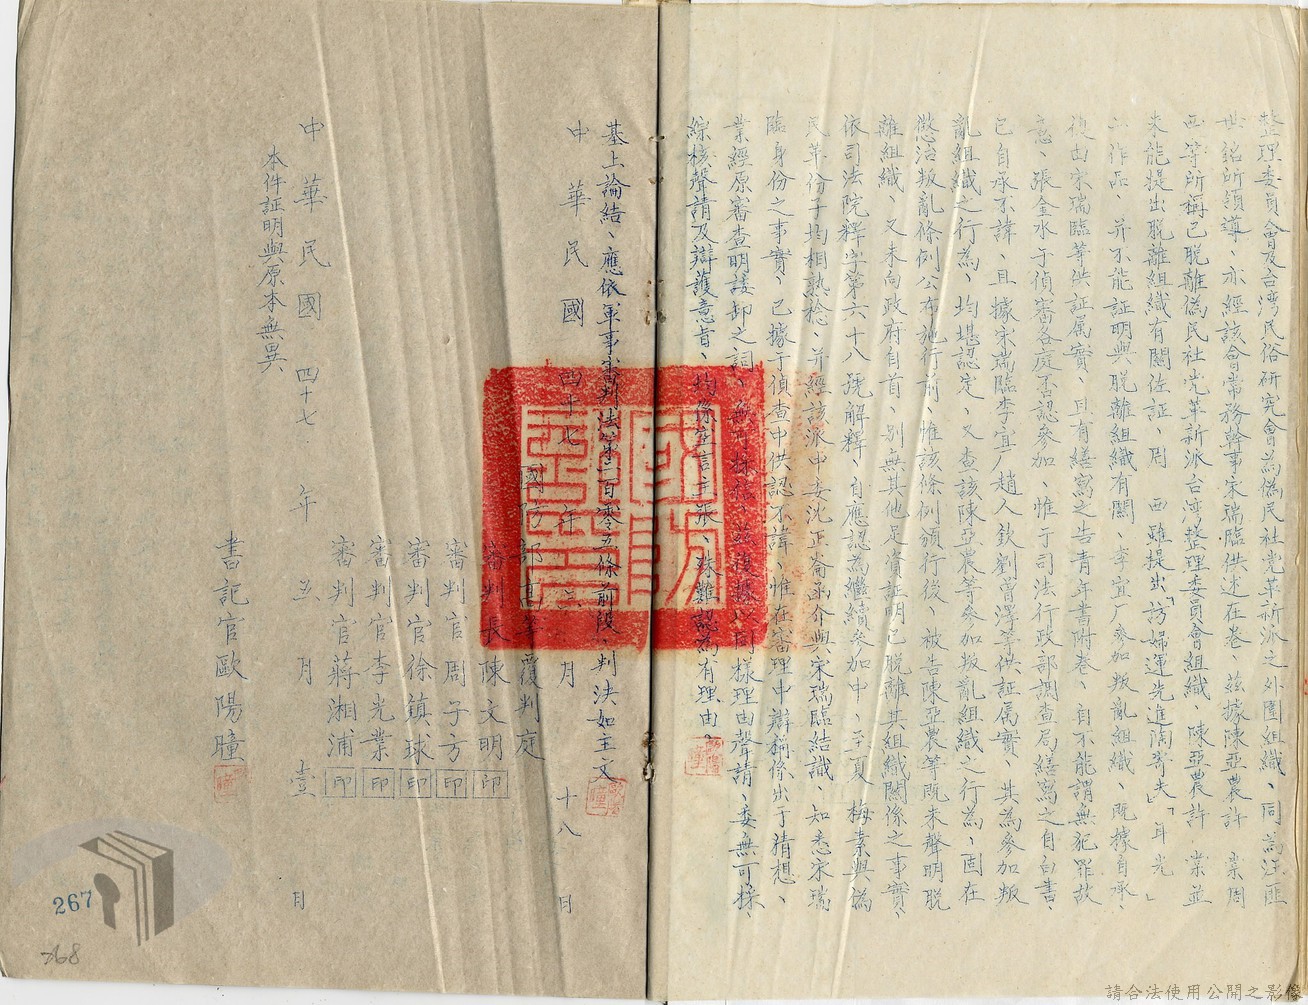 整理委員會及台湾民俗研究會為偽民社党革新派之外圍組織、同為汪匪
世銘所領導、亦經該會常務幹事宋瑞臨供述在卷、茲據陳亞農許 業周
西等所稱已脫離偽民社党革新派台湾整理委員會組織、陳亞農許 業並
未能提出脫離組織有關佐証、周 西雖提出「訪婦運先進闊寄夫」「耳光」
二作品、并不能証明與脫離組織有關、李宜厂參加叛亂組織、既據自承、
復由宋瑞臨等供証屬實、且有繕寫之告青年書附卷、自不能謂無犯罪故
意、張金水于偵審各庭否認參加、惟于司法行政部調查局繕寫之自白書、
已自承不諱、且據宋瑞臨李宜厂趙人欽劉嘗澤等供証屬實、其為參加叛
亂組織之行為、均堪認定、又查該陳亞農等參加叛亂組織之行為、固在
懲治叛亂條例公布施行前、惟該條例頒行後、被告陳亞農等既未聲明脫
離組織、又未向政府自首、別無其他足資証明已脫離其組織關係之事實、
依司法院釋字第六十八號解釋、自應認為繼續參加中、至夏 梅素與偽
民革份子均相熟稔、并經該派中委沈正崙函介與宋瑞臨結識、知悉宋瑞
臨身份之事實、已據于偵查中供認不諱、惟在審理中辯稱係出于猜想、
業經原審查明諉卸之詞、無可採信、茲復據以同樣理由聲請、委無可採、
綜核聲請及辯護意旨、均係空言主張、殊難認為有理由。
基上論結、應依軍事審判法第二百零五條前段、判決如主文
中華民國四十七年三月十八日
國防部 覆判庭
審判長陳文明 印
審判官周子方 印
審判官徐鎮球 印
審判官李光業 印
審判官蔣湘浦 印
中華民國四十七年五月壹日
本件証明與原本無異
書記官歐陽瞳
267
268
請合法使用公開之影像